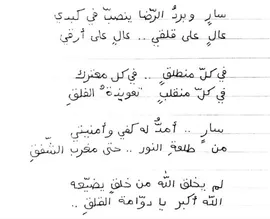 سارٍ وبردُ الرّضا ينصبّ في كبدي
عالٍ على قلقي .. عالٍ على أرقي
في كلّ منطلقٍ .. في كل معتركٍ
في كلّ منقلبٍ .. تعويذةُ الفلقِ
سارٍ .. أمدُّ له كفي وأمنيتي
من طلعةِ النور .. حتى مغرب الشّفقِ
لم يخلق الله من خلقٍ يضيّعه
الله أكبر يا دوّامة القلقِ ..